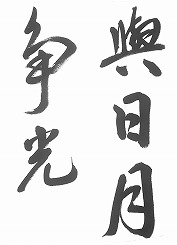 與日月
争光